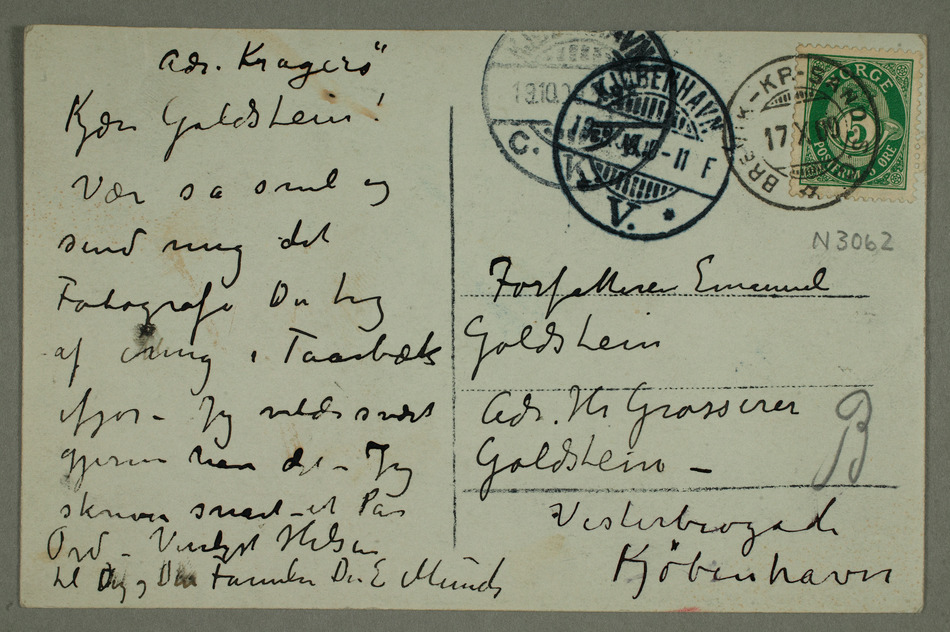 Adr. Kragerö
Kjære Goldstein!
Vær så snil og
send mig det
Fotografi Du tog
af mig i Taarbæk
ifjor – Jeg vilde svært
gjerne have det – Jeg
skriver snart et Par
Ord – Venligst Hilsen
til Dig og Din Familie Din E Munch
KJØBENHAVN
19.10.
C.
K.
KJØBENHAVN
19. 10. 09 -11 F
V.
BREVIK.-KR.SAND
17 X 09
NORGE
5
POSTFRIM. 5 ØRE
N3062
Forfatteren Emanuel
Goldstein
Adr. Hr Grosserer
Goldstein –
Vesterbrogade
Kjöbenhavn
B